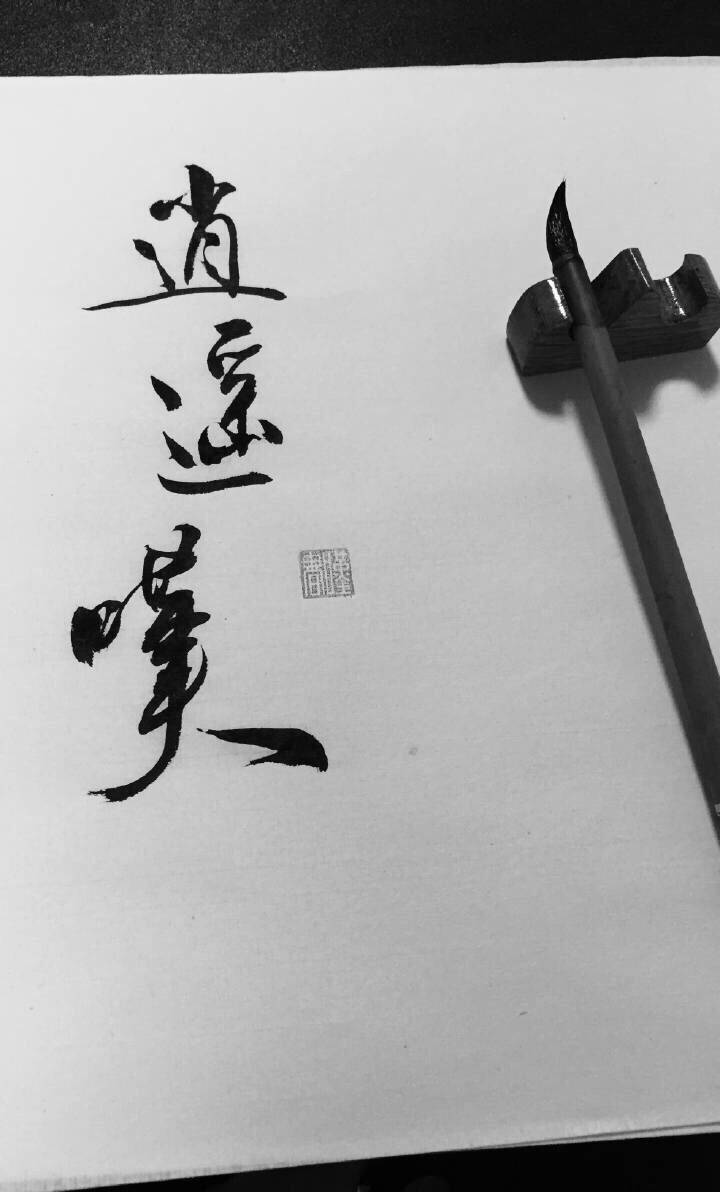 逍遥嘆